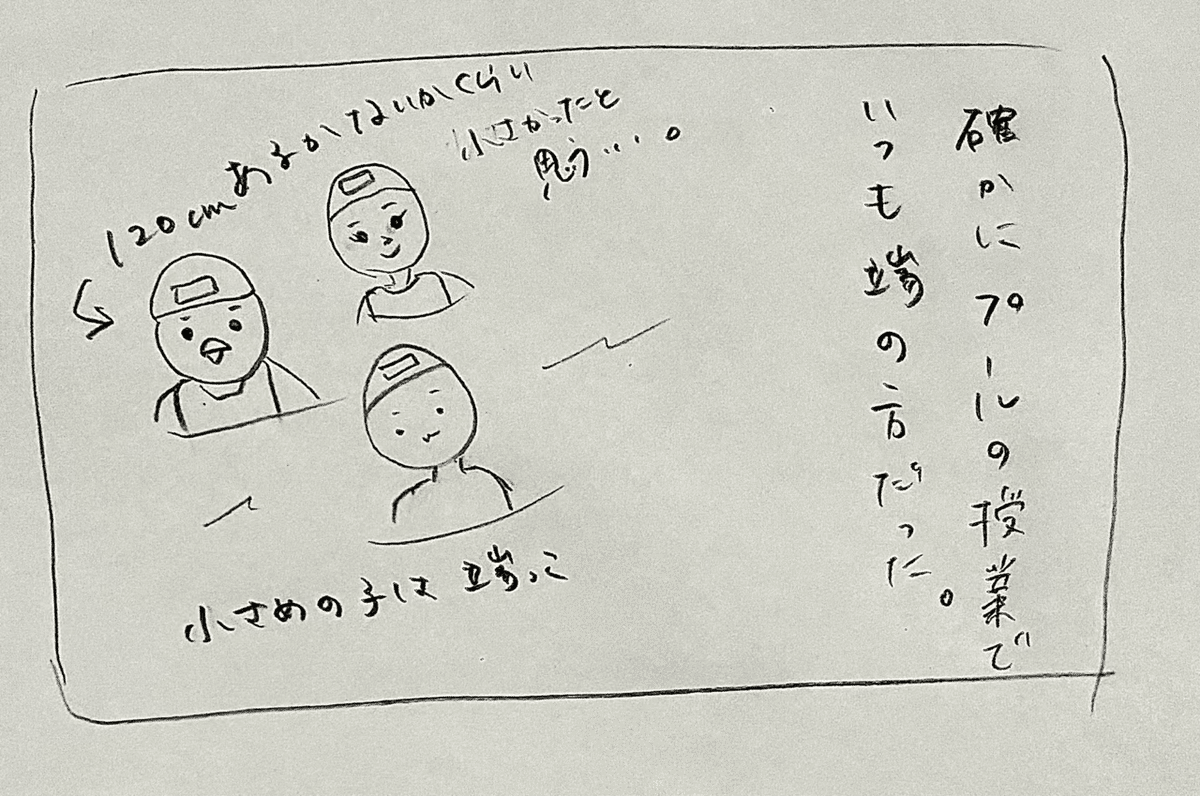 確かにプールの授業で
いつも端の方だった。
120cmあるかないかくらい
小さかったと
思う…。
小さめの子は端っこ